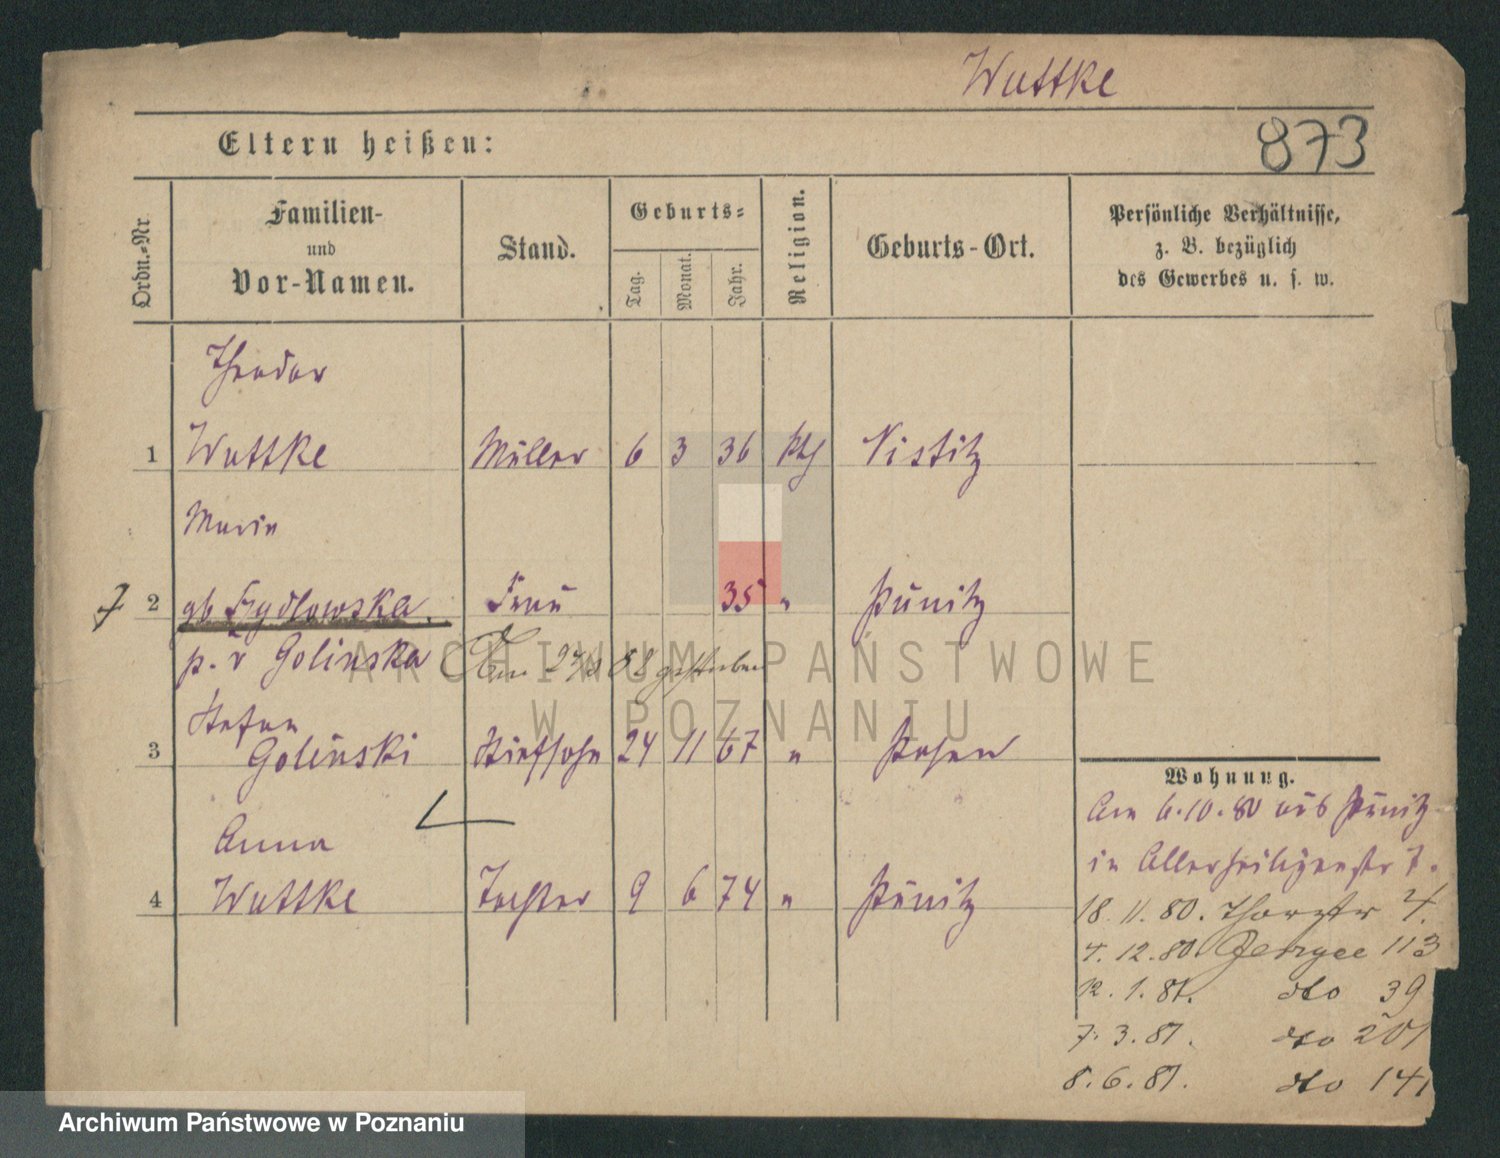 Wuttke
873
Eltern heißen:
Ordn.-Nr.
Familien- und Vor-Namen.
Stand.
Geburts-
Tag. Monat. Jahr.
Religion.
Geburts-Ort.
Persönliche Verhältnisse,
z. B. bezüglich
des Gewerbes u. s. w.
Theodor
1 Wuttke Müller 6 3 36 kth
Maria
2 gb Szydlowska. Frau 35 " Punitz
p. v Golinska
gestorben
Stefan
3 Golinski Stiefsohn 24 11 67 " Posen
Anna
4 Wuttke Tochter 9 6 74 " Punitz
Wohnung.
Am 6.10.80 aus Punitz
in Allerheiligenstr 7.
18. 11. 80. 4.
4. 12. 80. 113
12. 1. 81. dto 39
7. 3. 81. dto 201
8. 6. 81. dto 141
ARCHIWUM PAŃSTWOWE
W POZNANIU
Archiwum Państwowe w Poznaniu